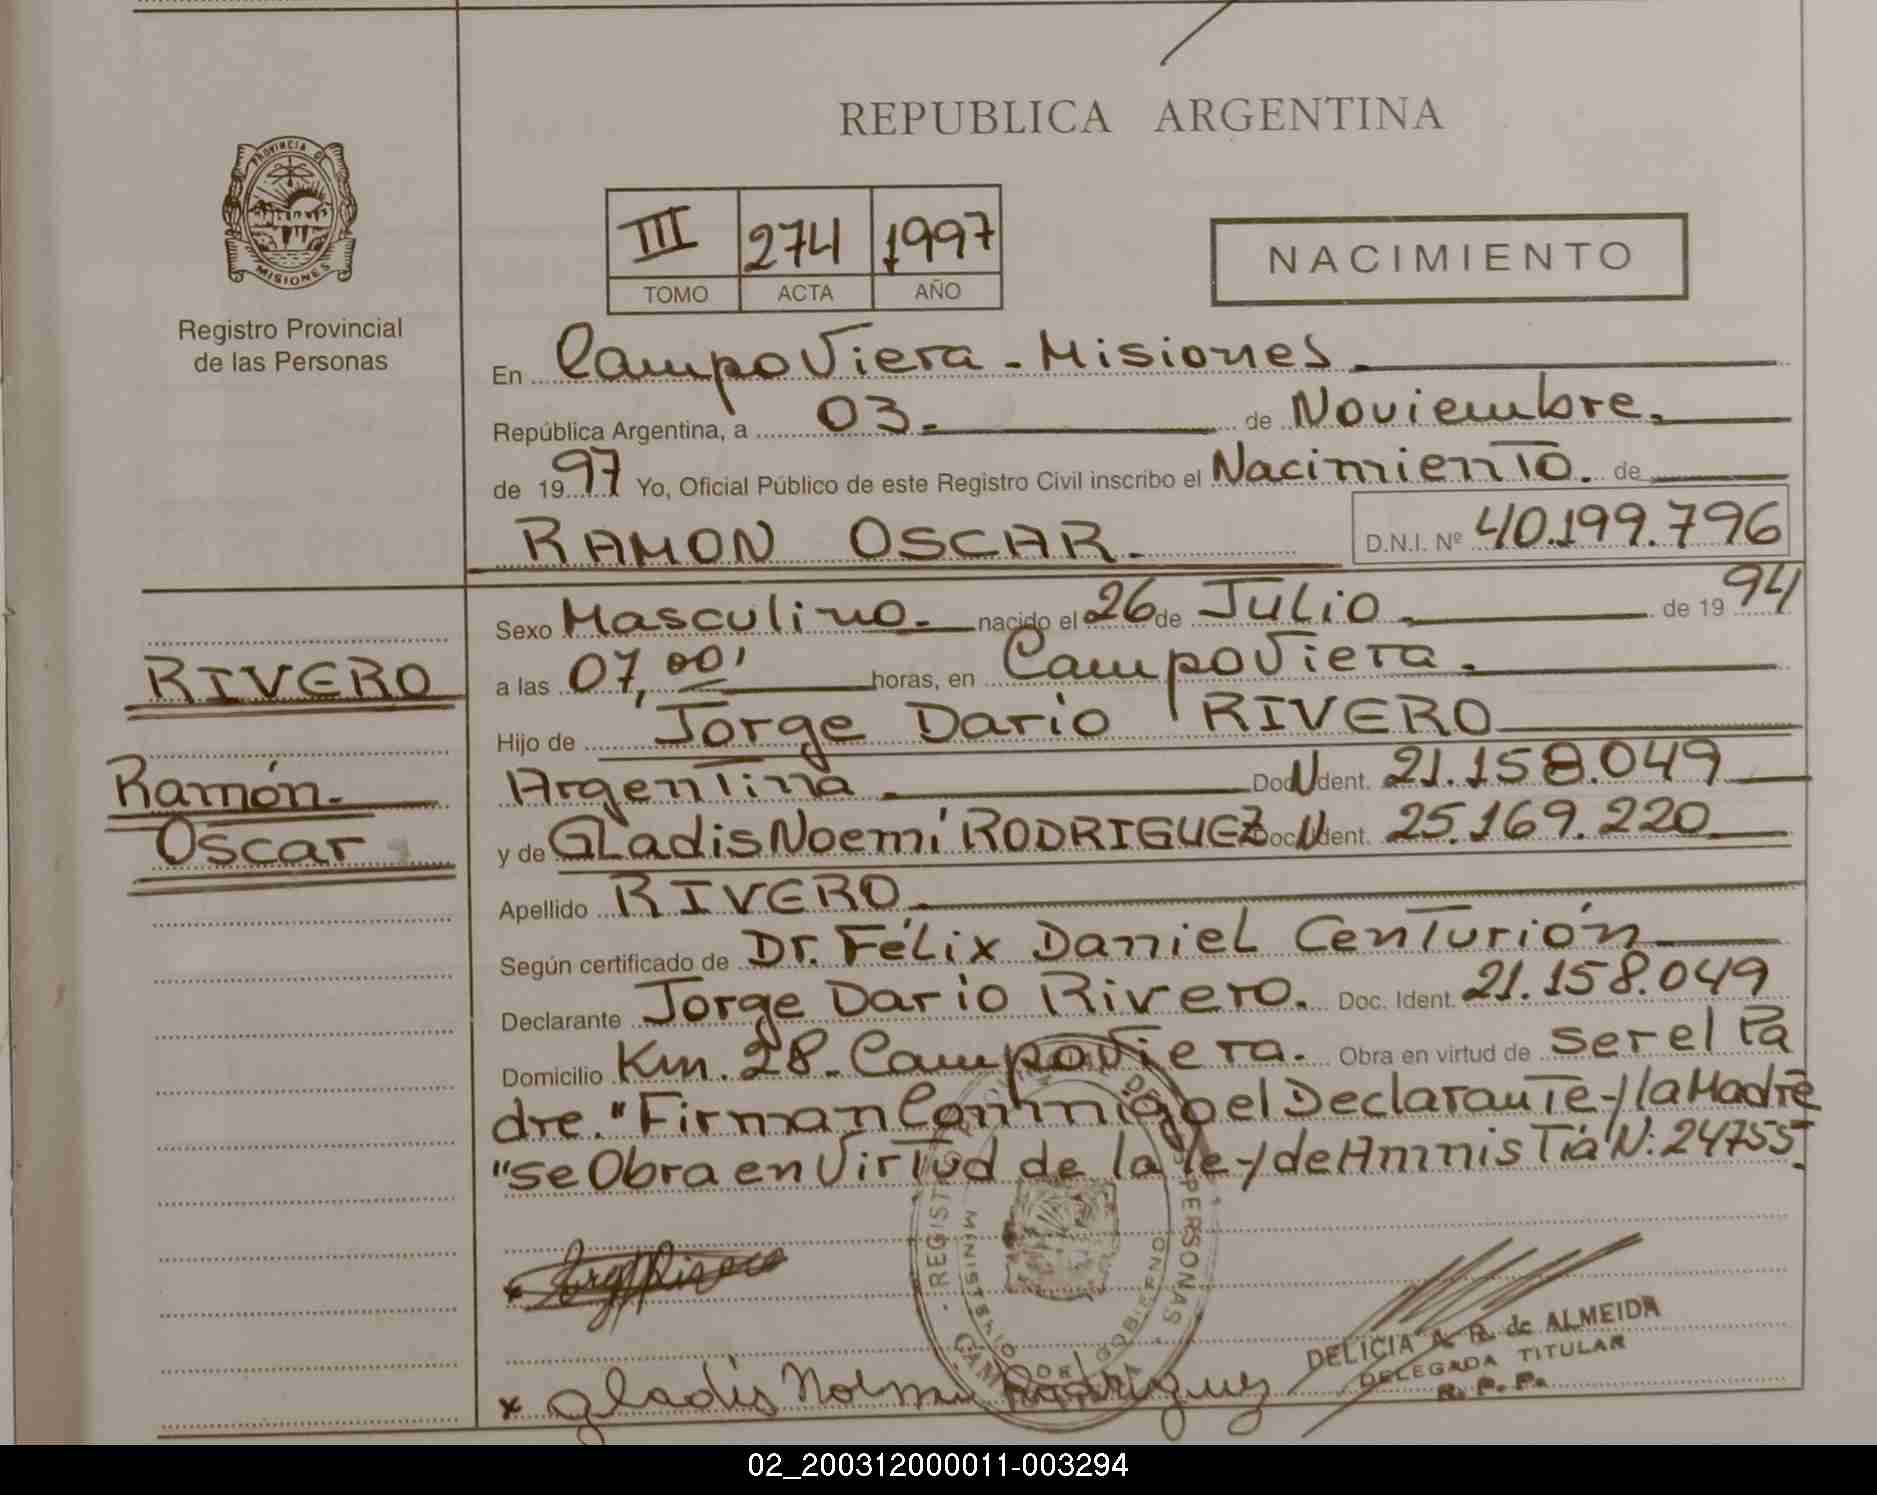 REPUBLICA ARGENTINA
PROVINCIA DE
MISIONES
Registro Provincial
de las Personas
III 274 1997
TOMO ACTA AÑO
NACIMIENTO
En Campo Viera - Misiones
República Argentina, a 03. de Noviembre.
de 1997 Yo, Oficial Público de este Registro Civil inscribo el Nacimiento. de
RAMON OSCAR. D.N.I. Nº 40.199.796
Sexo Masculino. nacido el 26 de Julio. de 1994
RIVERO
a las 07,00' horas, en Campo Viera.
Hijo de Jorge Dario RIVERO
Ramón.
Argentina. Doc. Ident. 21.158.049
Oscar
y de Gladis Noemí RODRIGUEZ Doc. Ident. 25.169.220
Apellido RIVERO.
Según certificado de Dr. Félix Daniel Centurión
Declarante Jorge Dario Rivero. Doc. Ident. 21.158.049
Domicilio Km. 28. Campo Viera. Obra en virtud de ser el Pa
dre. "Firman Conmigo el Declarante y la Madre
"se Obra en Virtud de la ley de Amnistia N: 24755.
REGIST PERSONAS
MINISTERIO DE GOBIERNO
gladis Noemi Rodriguez
DELICIA A. R. de ALMEIDA
DELEGADA TITULAR
R. P. P.
02_200312000011-003294